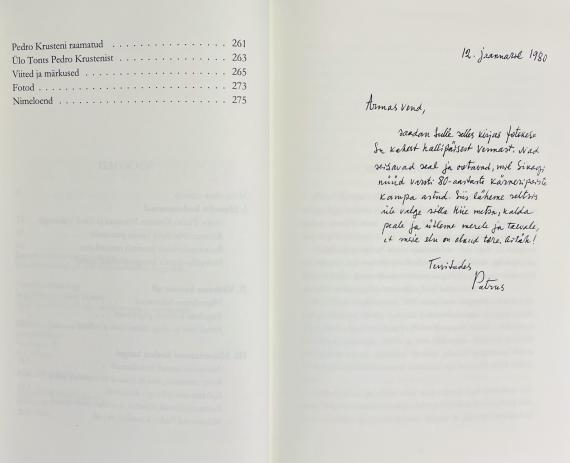 Pedro Krusteni raamatud . . . . . . . . . . . . . . . . 261
Ülo Tonts Pedro Krustenist . . . . . . . . . . . . . . . 263
Viited ja märkused . . . . . . . . . . . . . . . . . . . . 265
Fotod . . . . . . . . . . . . . . . . . . . . . . . . . . 273
Nimeloend . . . . . . . . . . . . . . . . . . . . . . . . 275
12. jaanuaril 1980
Armas vend,
saadan Sulle selles kirjas fotokese
Su kahest hallipäisest vennast. Nad
seisavad seal ja ootavad, mil Sinagi
nüüd varsti 80-aastaste käsnesipäiste
kampa astud. Siis läheme seltsis
üle valge silla Hiie metsa, kalda
peale ja ütleme merele ja taevale,
et meie elu on olnud tore. Aitäh!
Tervitades
Petrus